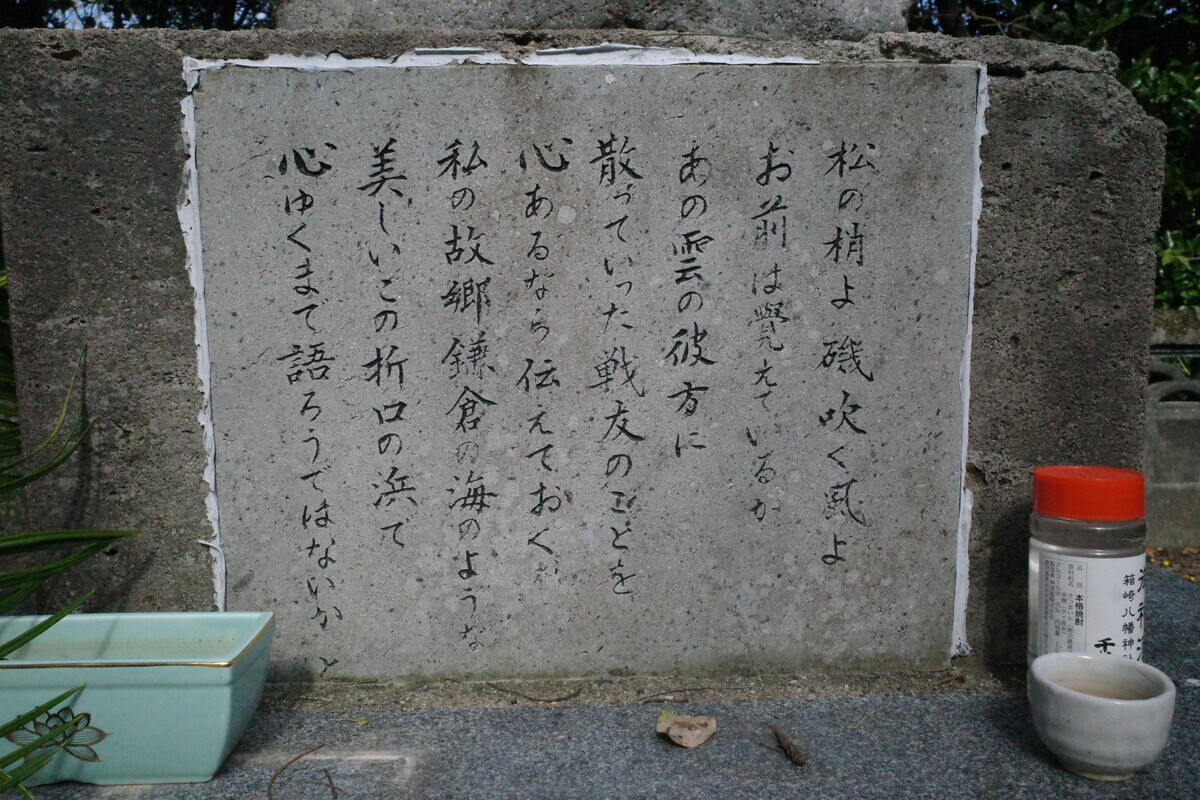 松の梢よ磯吹く風よ
お前は覺えているか
あの雲の彼方に
散っていった戦友のことを
心あるなら伝えておくれ
私の故郷鎌倉の海のような
美しいこの折口の浜で
心ゆくまで語ろうではないかと
箱崎八幡神社
品目 本格焼酎